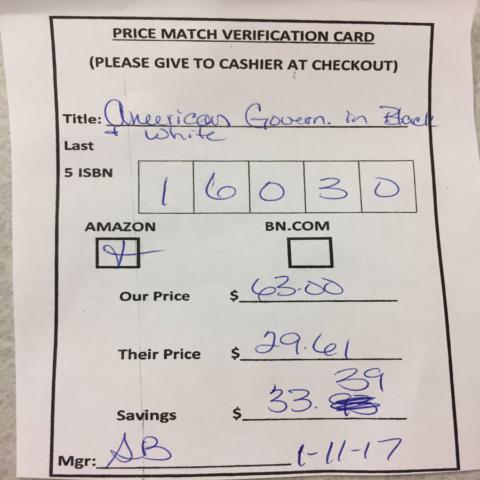 PRICE MATCH VERIFICATION CARD
(PLEASE GIVE TO CASHIER AT CHECKOUT)
Title: American Govern. in Black
+ White
Last
5 ISBN 1 6 0 3 0
AMAZON BN.COM
Our Price $ 63.00
Their Price $ 29.61
Savings $ 33.39
Mgr: SB 1-11-17